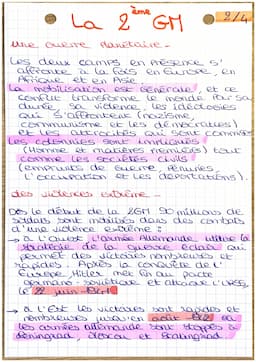 La 2ème GM
2/4
une guerre planétaire -
Les deux camps en présence s'
affronte à la fois en Europe, en
Afrique et en Asie.
La mobilisation est générale, et ce
conflit transforme le monde par sa
durée, sa violence, les idéologies
qui s'affrontent (nazisme,
communisme et les démocraties)
et les atrocités qui sont commises
Les colonies sont impliqués
(Homme et matières premières) tout
comme les sociétés civils
(emprunts de guerre, pénuries,
l'occupation et les déportations).
des violences extrême -
Dès le début de la 2GM 90 millions de
soldats sont mobilisés dans des combats
d'une violence extrême :
→ à l'Ouest, l'armée Allemande utilise la
stratégie de la guerre éclair qui
permet des victoires nombreuses et
rapides. Après la conquête de l'
Europe, Hitler met fin au pacte
germano-soviétique et attaque l'URSS,
le 22 juin 1941
→ à l'Est les victoires sont rapides et
nombreuses mais en août 1942
les armées allemande sont stoppés à
Léningrad, Moscou et Stalingrad